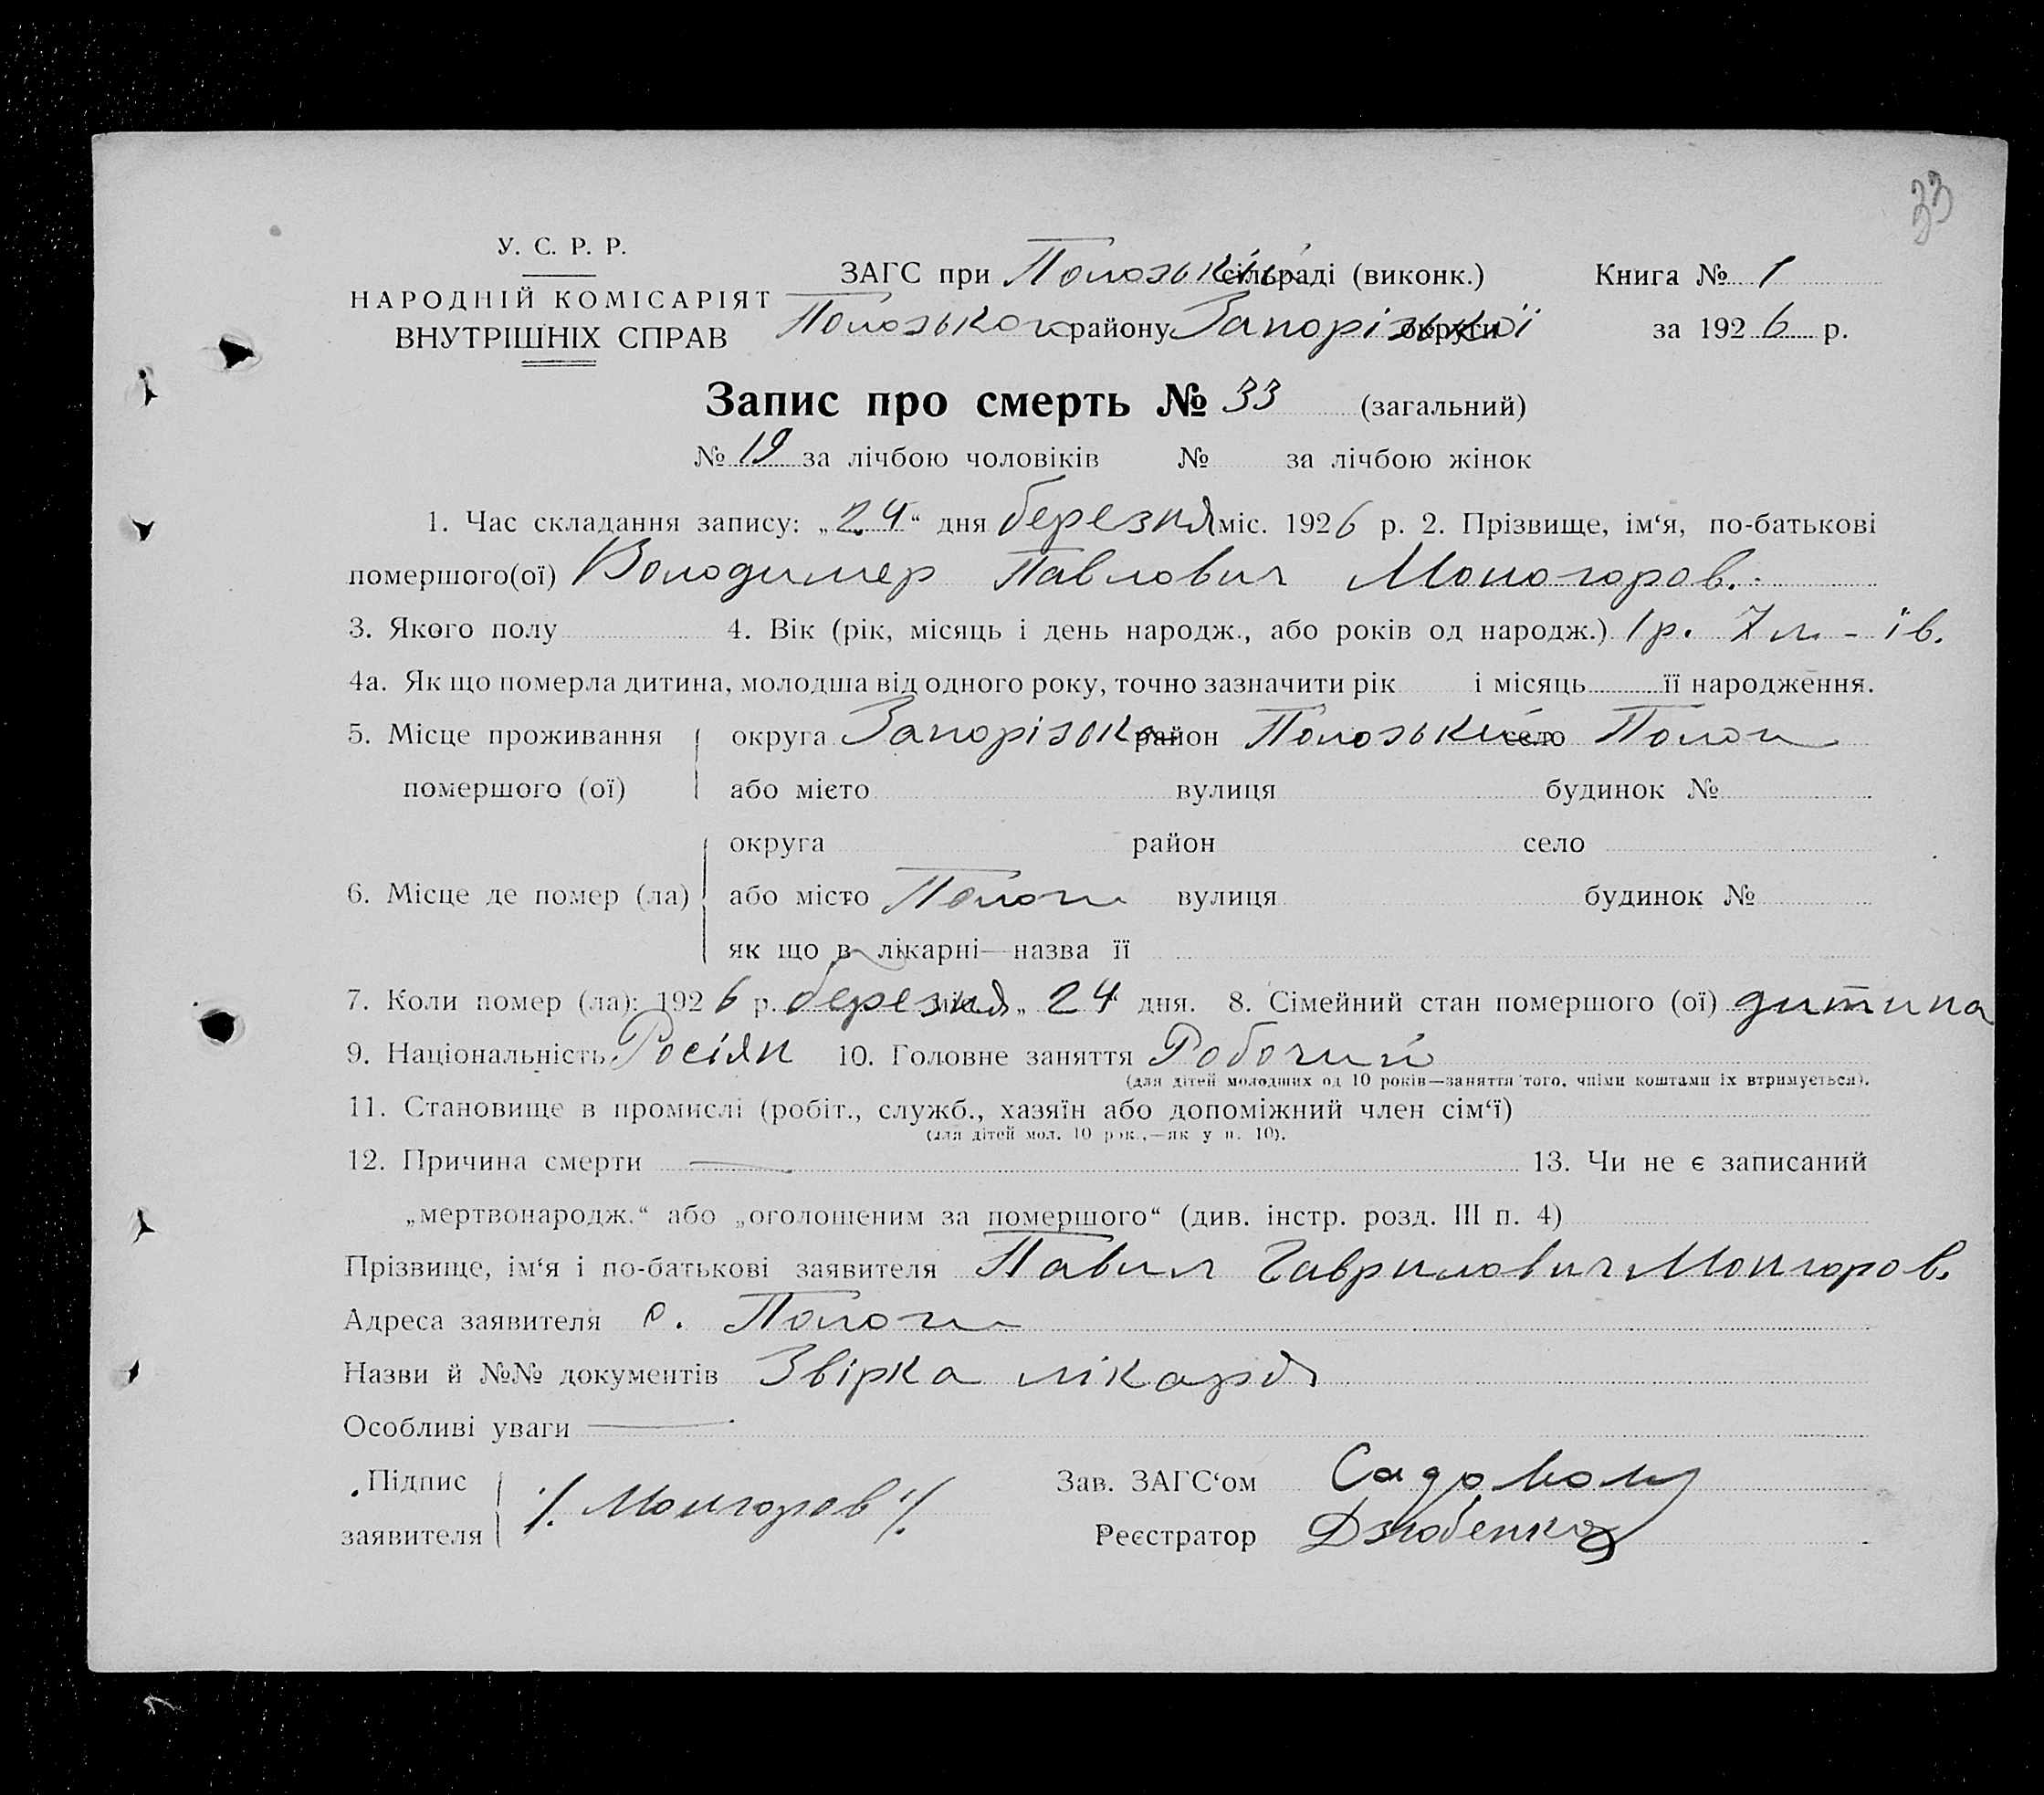 33
У. С. Р. Р.
НАРОДНІЙ КОМІСАРІЯТ
ВНУТРІШНІХ СПРАВ
ЗАГС при Полозькій сільраді (виконк.)
Полозького району Запорізької округи
Книга № 1
за 1926 р.
Запис про смерть № 33 (загальний)
№ 19 за лічбою чоловіків № за лічбою жінок
1. Час складання запису: „24“ дня березня міс. 1926 р. 2. Прізвище, ім‘я, по-батькові
помершого(ої) Володимер Павлович
3. Якого полу 4. Вік (рік, місяць і день народж., або років од народж.) 1 р. 7 м-ів.
4а. Як що померла дитина, молодша від одного року, точно зазначити рік і місяць її народження.
5. Місце проживання округа Запорізька район Полозький село Пологи
помершого (ої) або місто вулиця будинок №
округа район село
6. Місце де помер (ла) або місто Пологи вулиця будинок №
як що в лікарні—назва її
7. Коли помер (ла): 1926 р. березня міс. „24“ дня. 8. Сімейний стан помершого (ої) дитина
9. Національність Росіян 10. Головне заняття Робочий
(для дітей молодших од 10 років—заняття того, чиїми коштами їх втримується).
11. Становище в промислі (робіт., служб., хазяїн або допоміжний член сім‘ї)
(для дітей мол. 10 рок.,—як у п. 10).
12. Причина смерти — 13. Чи не є записаний
„мертвонародж.“ або „оголошеним за помершого“ (див. інстр. розд. III п. 4)
Прізвище, ім‘я і по-батькові заявителя Гаврилович
Адреса заявителя с. Пологи
Назви й №№ документів Звірка лікаря
Особливі уваги —
Підпис
заявителя
Зав. ЗАГС‘ом
Реєстратор Дзюбенко